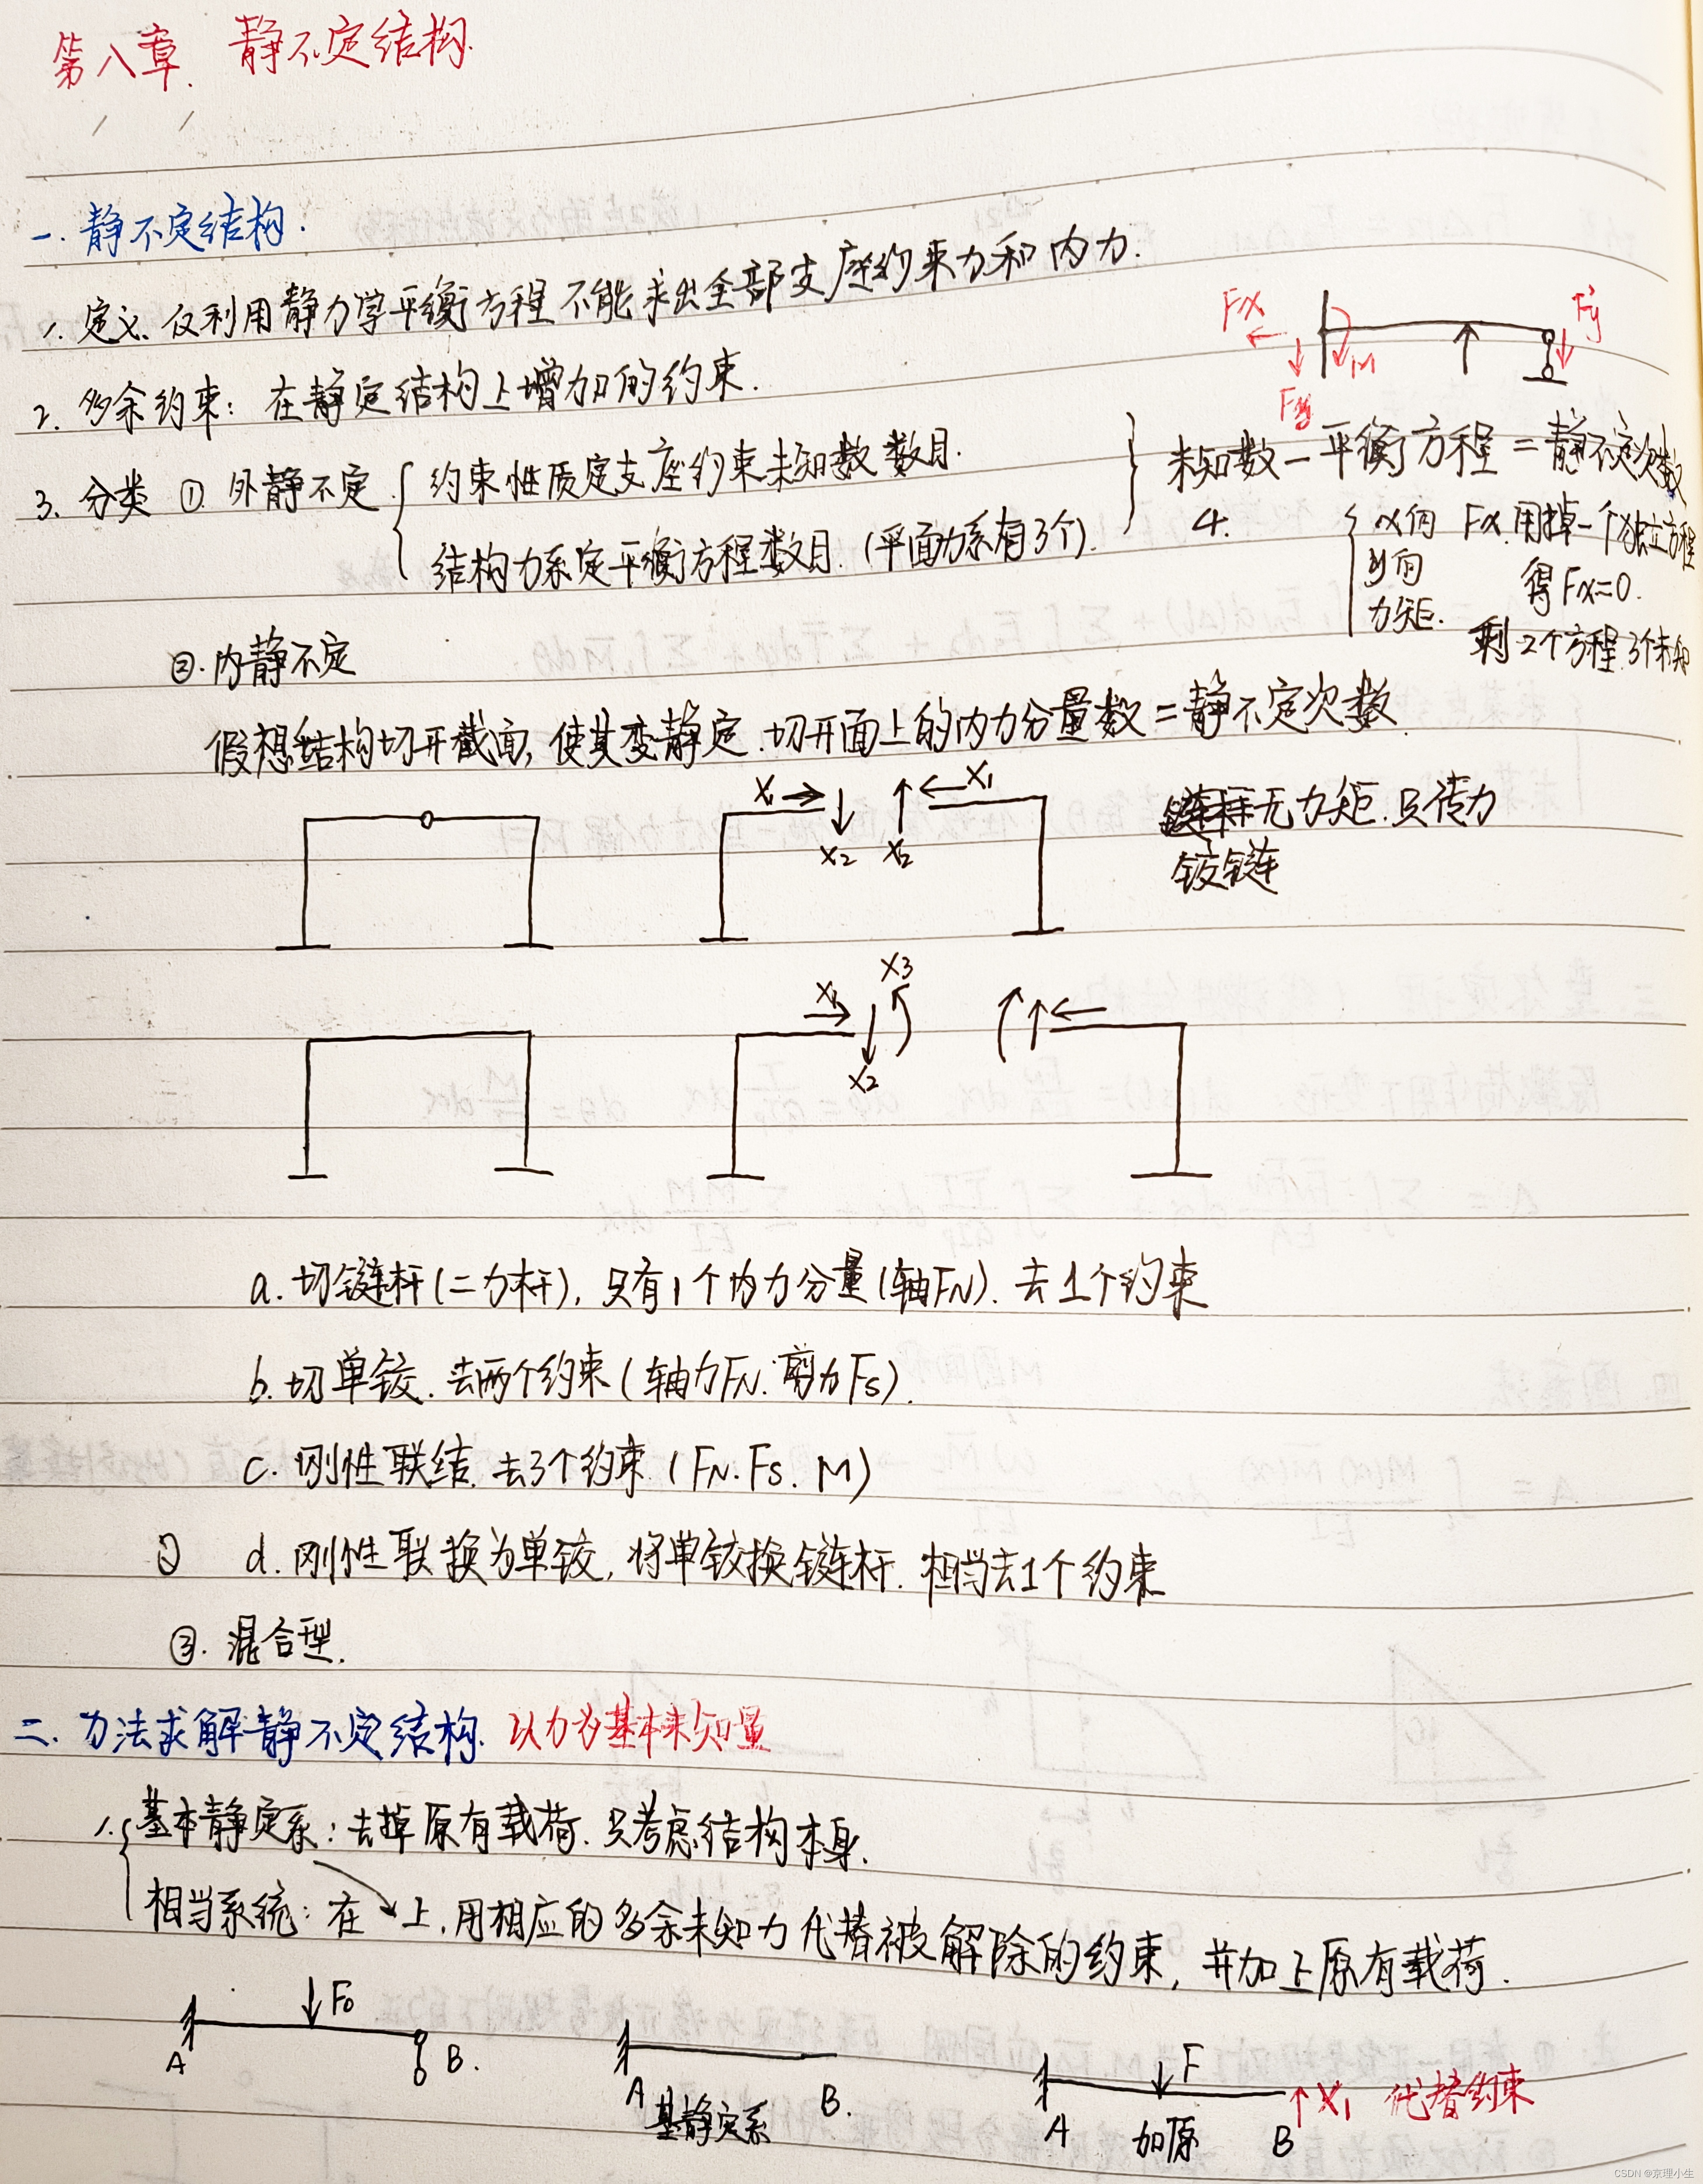 第八章. 静不定结构.
一. 静不定结构:
1. 定义. 仅利用静力学平衡方程不能求出全部支座约束力和内力.
Fx
Fy
M
Fy
2. 多余约束: 在静定结构上增加的约束.
3. 分类 ① 外静不定 { 约束性质定支座约束未知数数目.
结构力系定平衡方程数目. (平面力系有3个).
} 未知数 — 平衡方程 = 静不定次数
4.
{ x向 Fx 用掉一个独立方程
y向 得Fx=0.
力矩. 剩2个方程 3个未知
②. 内静不定
假想结构切开截面, 使其变静定. 切开面上的内力分量数 = 静不定次数
X1 X2 X2 X1
无力矩. 只传力
铰链
X1 X2 X3
a. 切链杆(二力杆), 只有1个内力分量(轴FN). 去1个约束
b. 切单铰. 去两个约束 (轴力FN. 剪力Fs).
c. 刚性联结. 去3个约束. (FN. Fs. M)
d. 刚性联换为单铰, 将单铰换链杆. 相当去1个约束
③. 混合型.
二. 力法求解静不定结构. 以力为基本未知量
1. { 基本静定系: 去掉原有载荷. 只考虑结构本身.
相当系统: 在 上, 用相应的多余未知力代替被解除的约束, 并加上原有载荷.
F0
A B.
A B.
基静定系
F
A 加原 B X1 代替约束
CSDN @京理小生